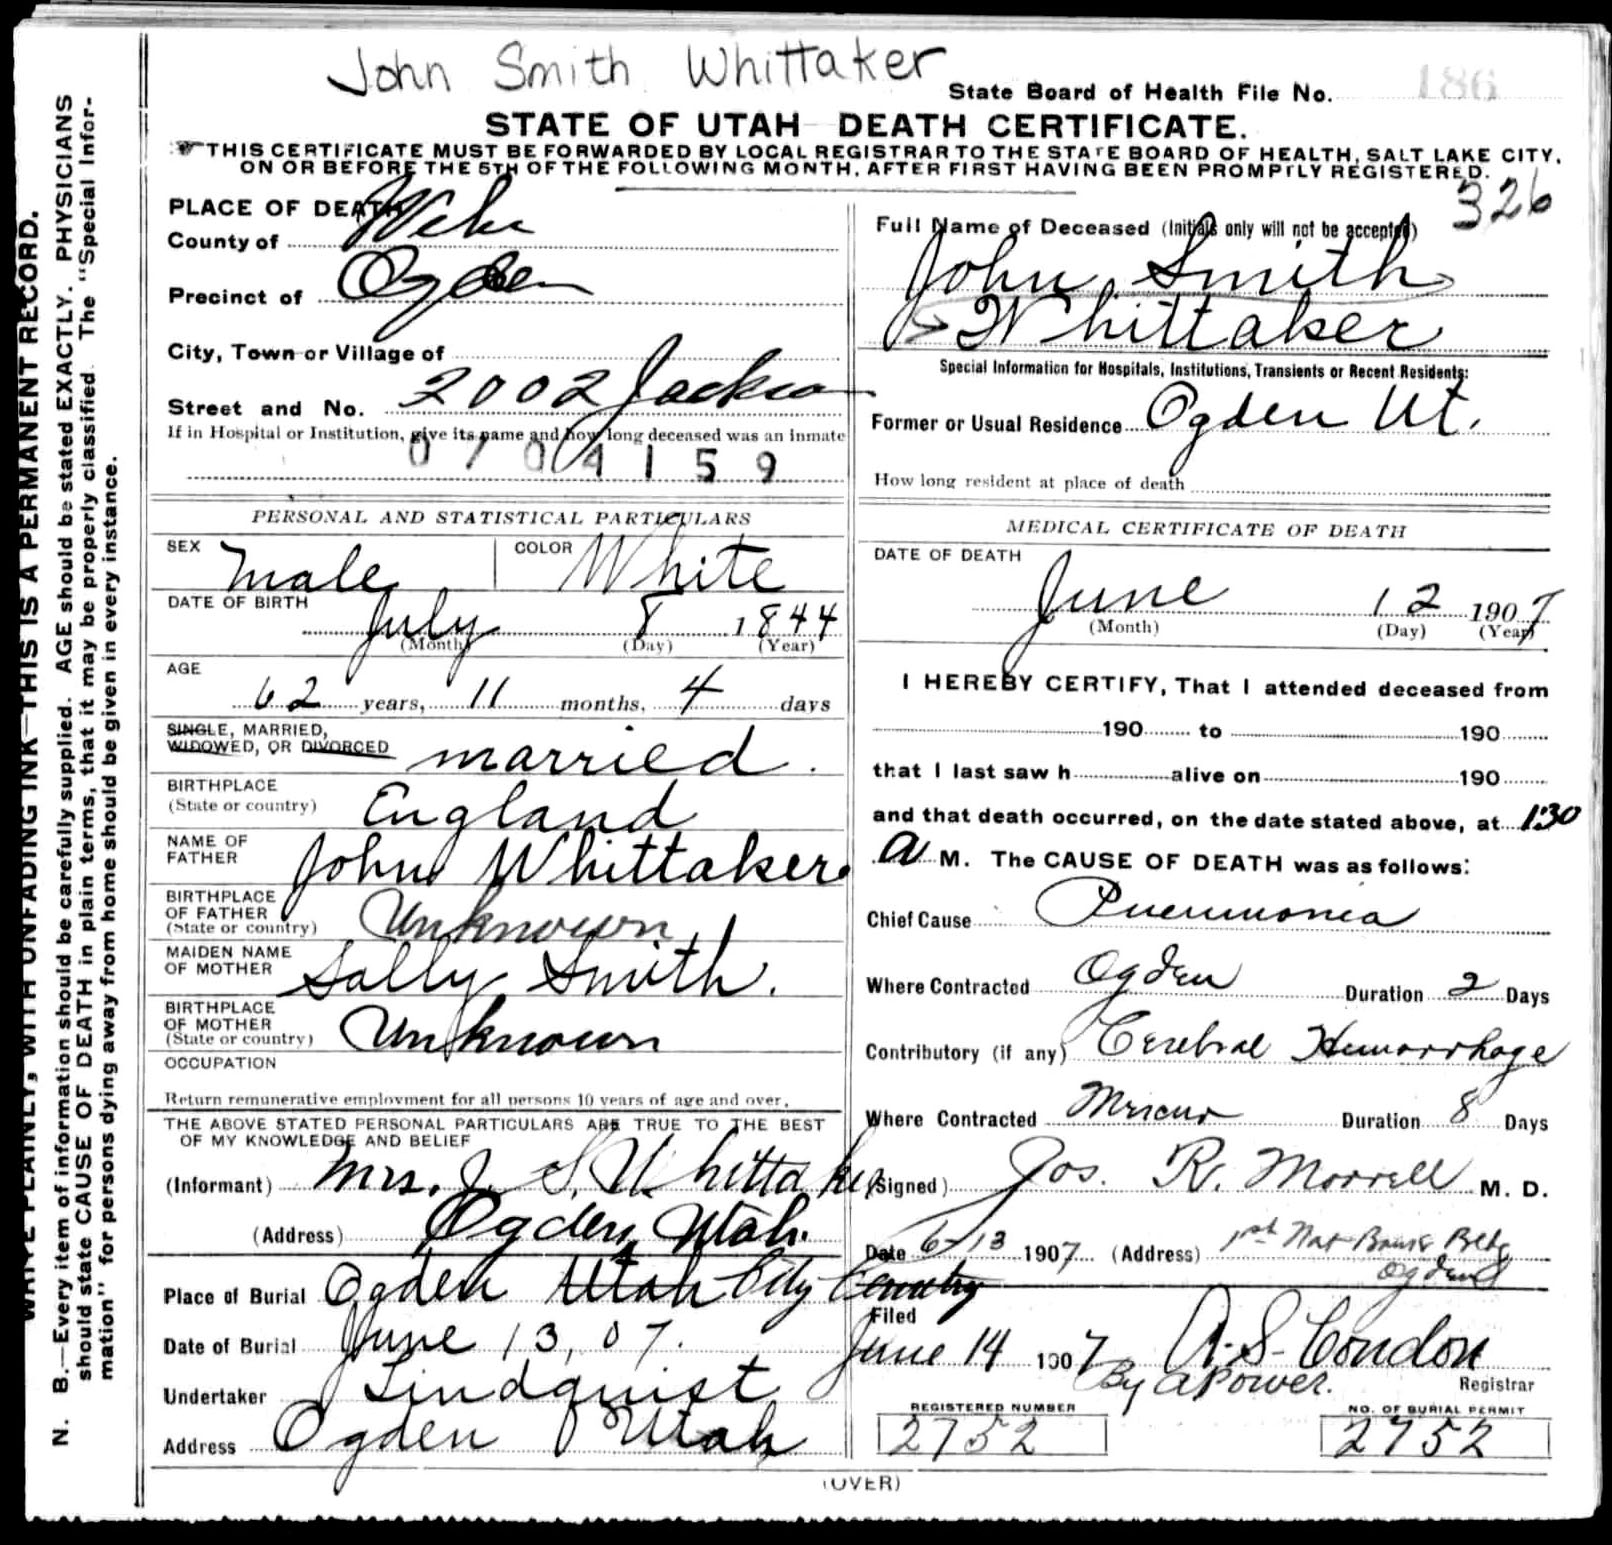 John Smith Whittaker
State Board of Health File No. 186
STATE OF UTAH DEATH CERTIFICATE.
THIS CERTIFICATE MUST BE FORWARDED BY LOCAL REGISTRAR TO THE STATE BOARD OF HEALTH, SALT LAKE CITY,
ON OR BEFORE THE 5TH OF THE FOLLOWING MONTH, AFTER FIRST HAVING BEEN PROMPTLY REGISTERED.
326
WRITE PLAINLY, WITH UNFADING INK—THIS IS A PERMANENT RECORD.
N. B.—Every item of information should be carefully supplied. AGE should be stated EXACTLY. PHYSICIANS
should state CAUSE OF DEATH in plain terms, that it may be properly classified. The "Special Infor-
mation" for persons dying away from home should be given in every instance.
PLACE OF DEATH
County of Weber
Precinct of Ogden
City, Town or Village of
Street and No. 2002 Jackson
If in Hospital or Institution, give its name and how long deceased was an inmate
0704159
PERSONAL AND STATISTICAL PARTICULARS
SEX Male COLOR White
DATE OF BIRTH
July 8 1844
(Month) (Day) (Year)
AGE
62 years, 11 months, 4 days
SINGLE, MARRIED,
WIDOWED, OR DIVORCED married.
BIRTHPLACE
(State or country) England
NAME OF
FATHER John Whittaker.
BIRTHPLACE
OF FATHER
(State or country) Unknown
MAIDEN NAME
OF MOTHER Sally Smith.
BIRTHPLACE
OF MOTHER
(State or country) Unknown
OCCUPATION
Return remunerative employment for all persons 10 years of age and over.
THE ABOVE STATED PERSONAL PARTICULARS ARE TRUE TO THE BEST
OF MY KNOWLEDGE AND BELIEF
(Informant) Mrs. J. S. Whittaker
(Address) Ogden, Utah.
Place of Burial Ogden Utah City Cemetry
Date of Burial June 13, 07.
Undertaker Lindquist
Address Ogden Utah
Full Name of Deceased (Initials only will not be accepted)
John Smith
Whittaker
Special Information for Hospitals, Institutions, Transients or Recent Residents:
Former or Usual Residence Ogden Ut.
How long resident at place of death
MEDICAL CERTIFICATE OF DEATH
DATE OF DEATH
June 12 1907
(Month) (Day) (Year)
I HEREBY CERTIFY, That I attended deceased from
190 to 190
that I last saw h alive on 190
and that death occurred, on the date stated above, at 1:30
a M. The CAUSE OF DEATH was as follows:
Chief Cause Pneumonia
Where Contracted Ogden Duration 2 Days
Contributory (if any) Cerebral Hemorrhage
Where Contracted Mercur Duration 8 Days
(Signed) Jos. R. Morrell M. D.
Date 6/13 1907 (Address) 1st Nat Bank Bldg
Ogden
Filed
June 14 1907 A. S. Condon
By A Power. Registrar
REGISTERED NUMBER
2752
NO. OF BURIAL PERMIT
2752
(OVER)